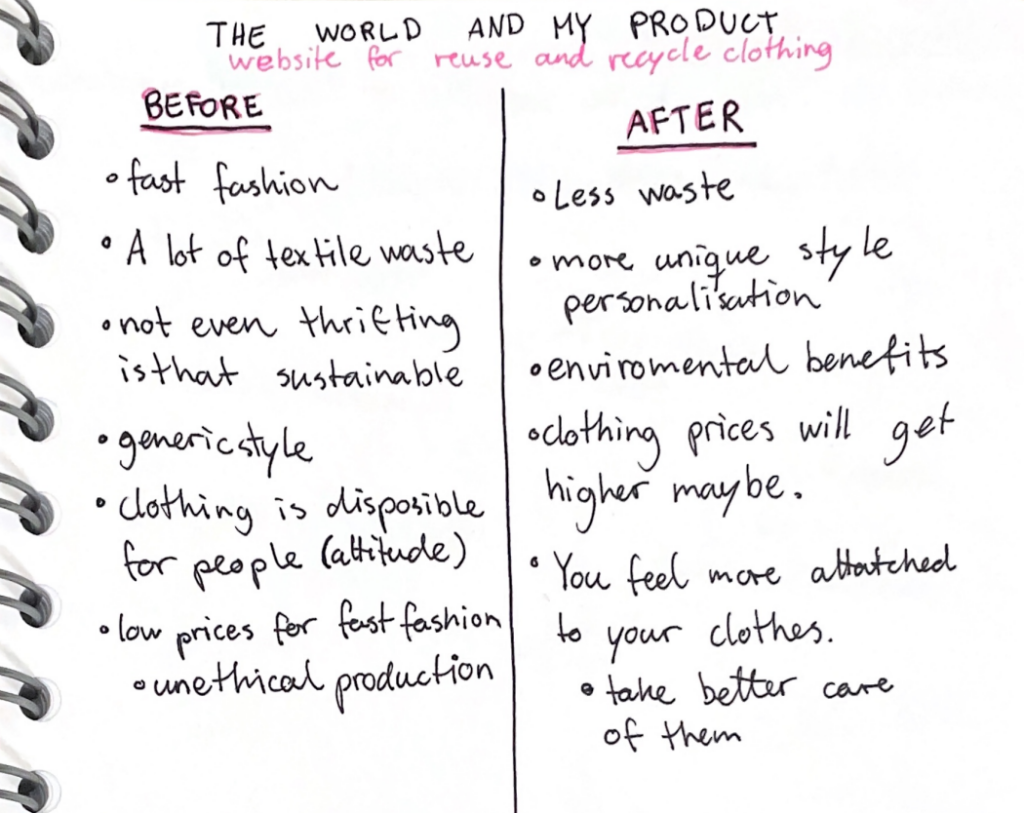 THE WORLD AND MY PRODUCT
website for reuse and recycle clothing
BEFORE
• fast fashion
• A lot of textile waste
• not even thrifting
is that sustainable
• generic style
• clothing is disposible
for people (attitude)
• low prices for fast fashion
• unethical production
AFTER
• Less waste
• more unique style
personalisation
• enviromental benefits
• clothing prices will get
higher maybe.
• You feel more attatched
to your clothes.
• take better care
of them